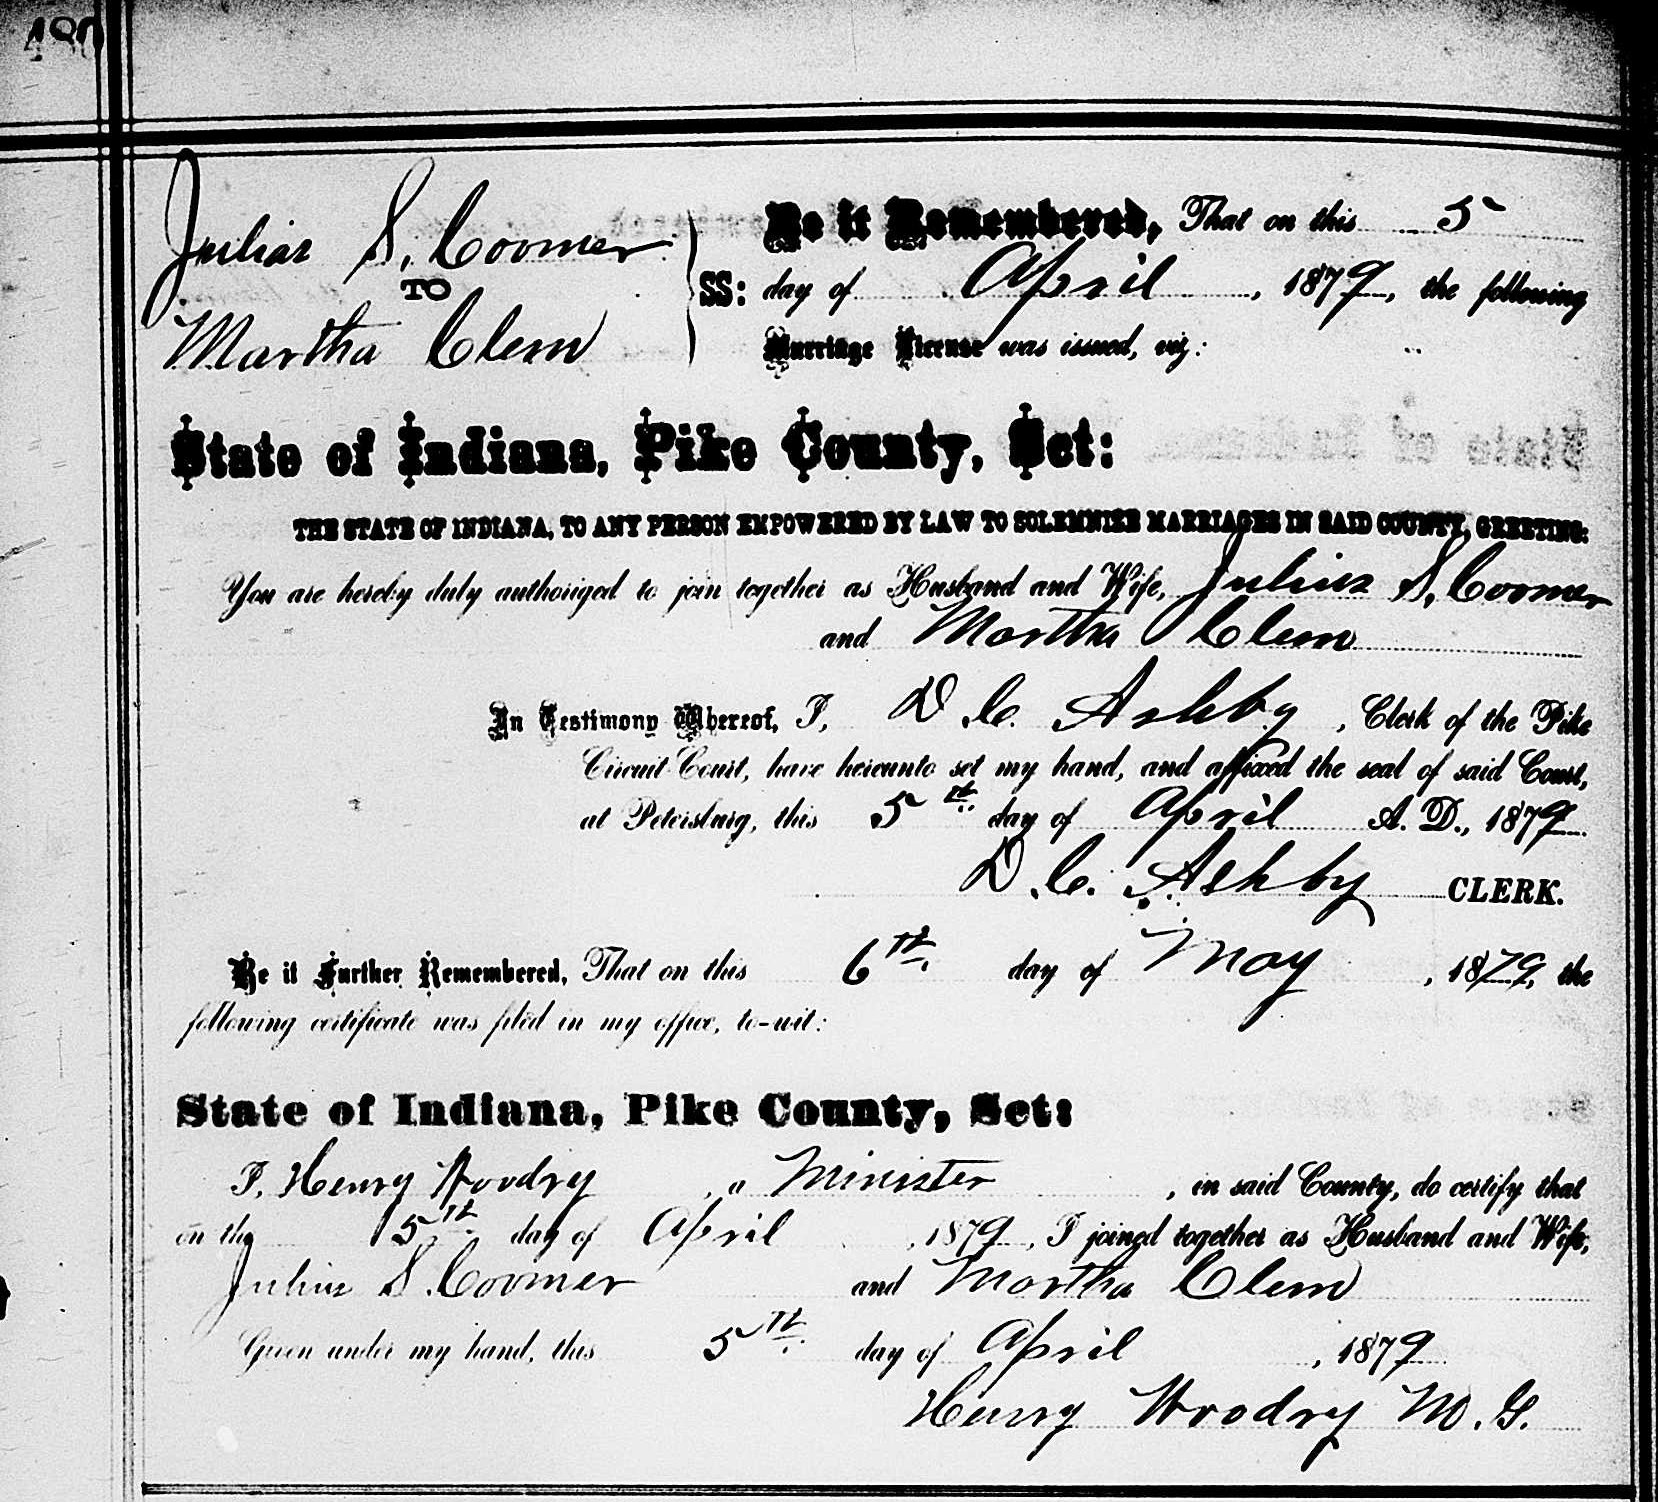 Julius S. Coomer
TO
Martha Clem
SS:
Be it Remembered, That on this 5
day of April, 1879, the following
Marriage License was issued, viz:
State of Indiana, Pike County, Sct:
THE STATE OF INDIANA, TO ANY PERSON EMPOWERED BY LAW TO SOLEMNIZE MARRIAGES IN SAID COUNTY, GREETING:
You are hereby duly authorized to join together as Husband and Wife, Julius S. Coomer
and Martha Clem
In Testimony Whereof, I, D. C. Ashby, Clerk of the Pike
Circuit Court, have hereunto set my hand, and affixed the seal of said Court,
at Petersburg, this 5th day of April A. D., 1879.
D. C. Ashby CLERK.
Be it Further Remembered, That on this 6th day of May, 1879, the
following certificate was filed in my office, to-wit:
State of Indiana, Pike County, Sct:
I, Henry Woodry, a Minister, in said County, do certify that
on the 5th day of April, 1879, I joined together as Husband and Wife,
Julius S. Coomer and Martha Clem
Given under my hand, this 5th day of April, 1879
Henry Woodry M. G.